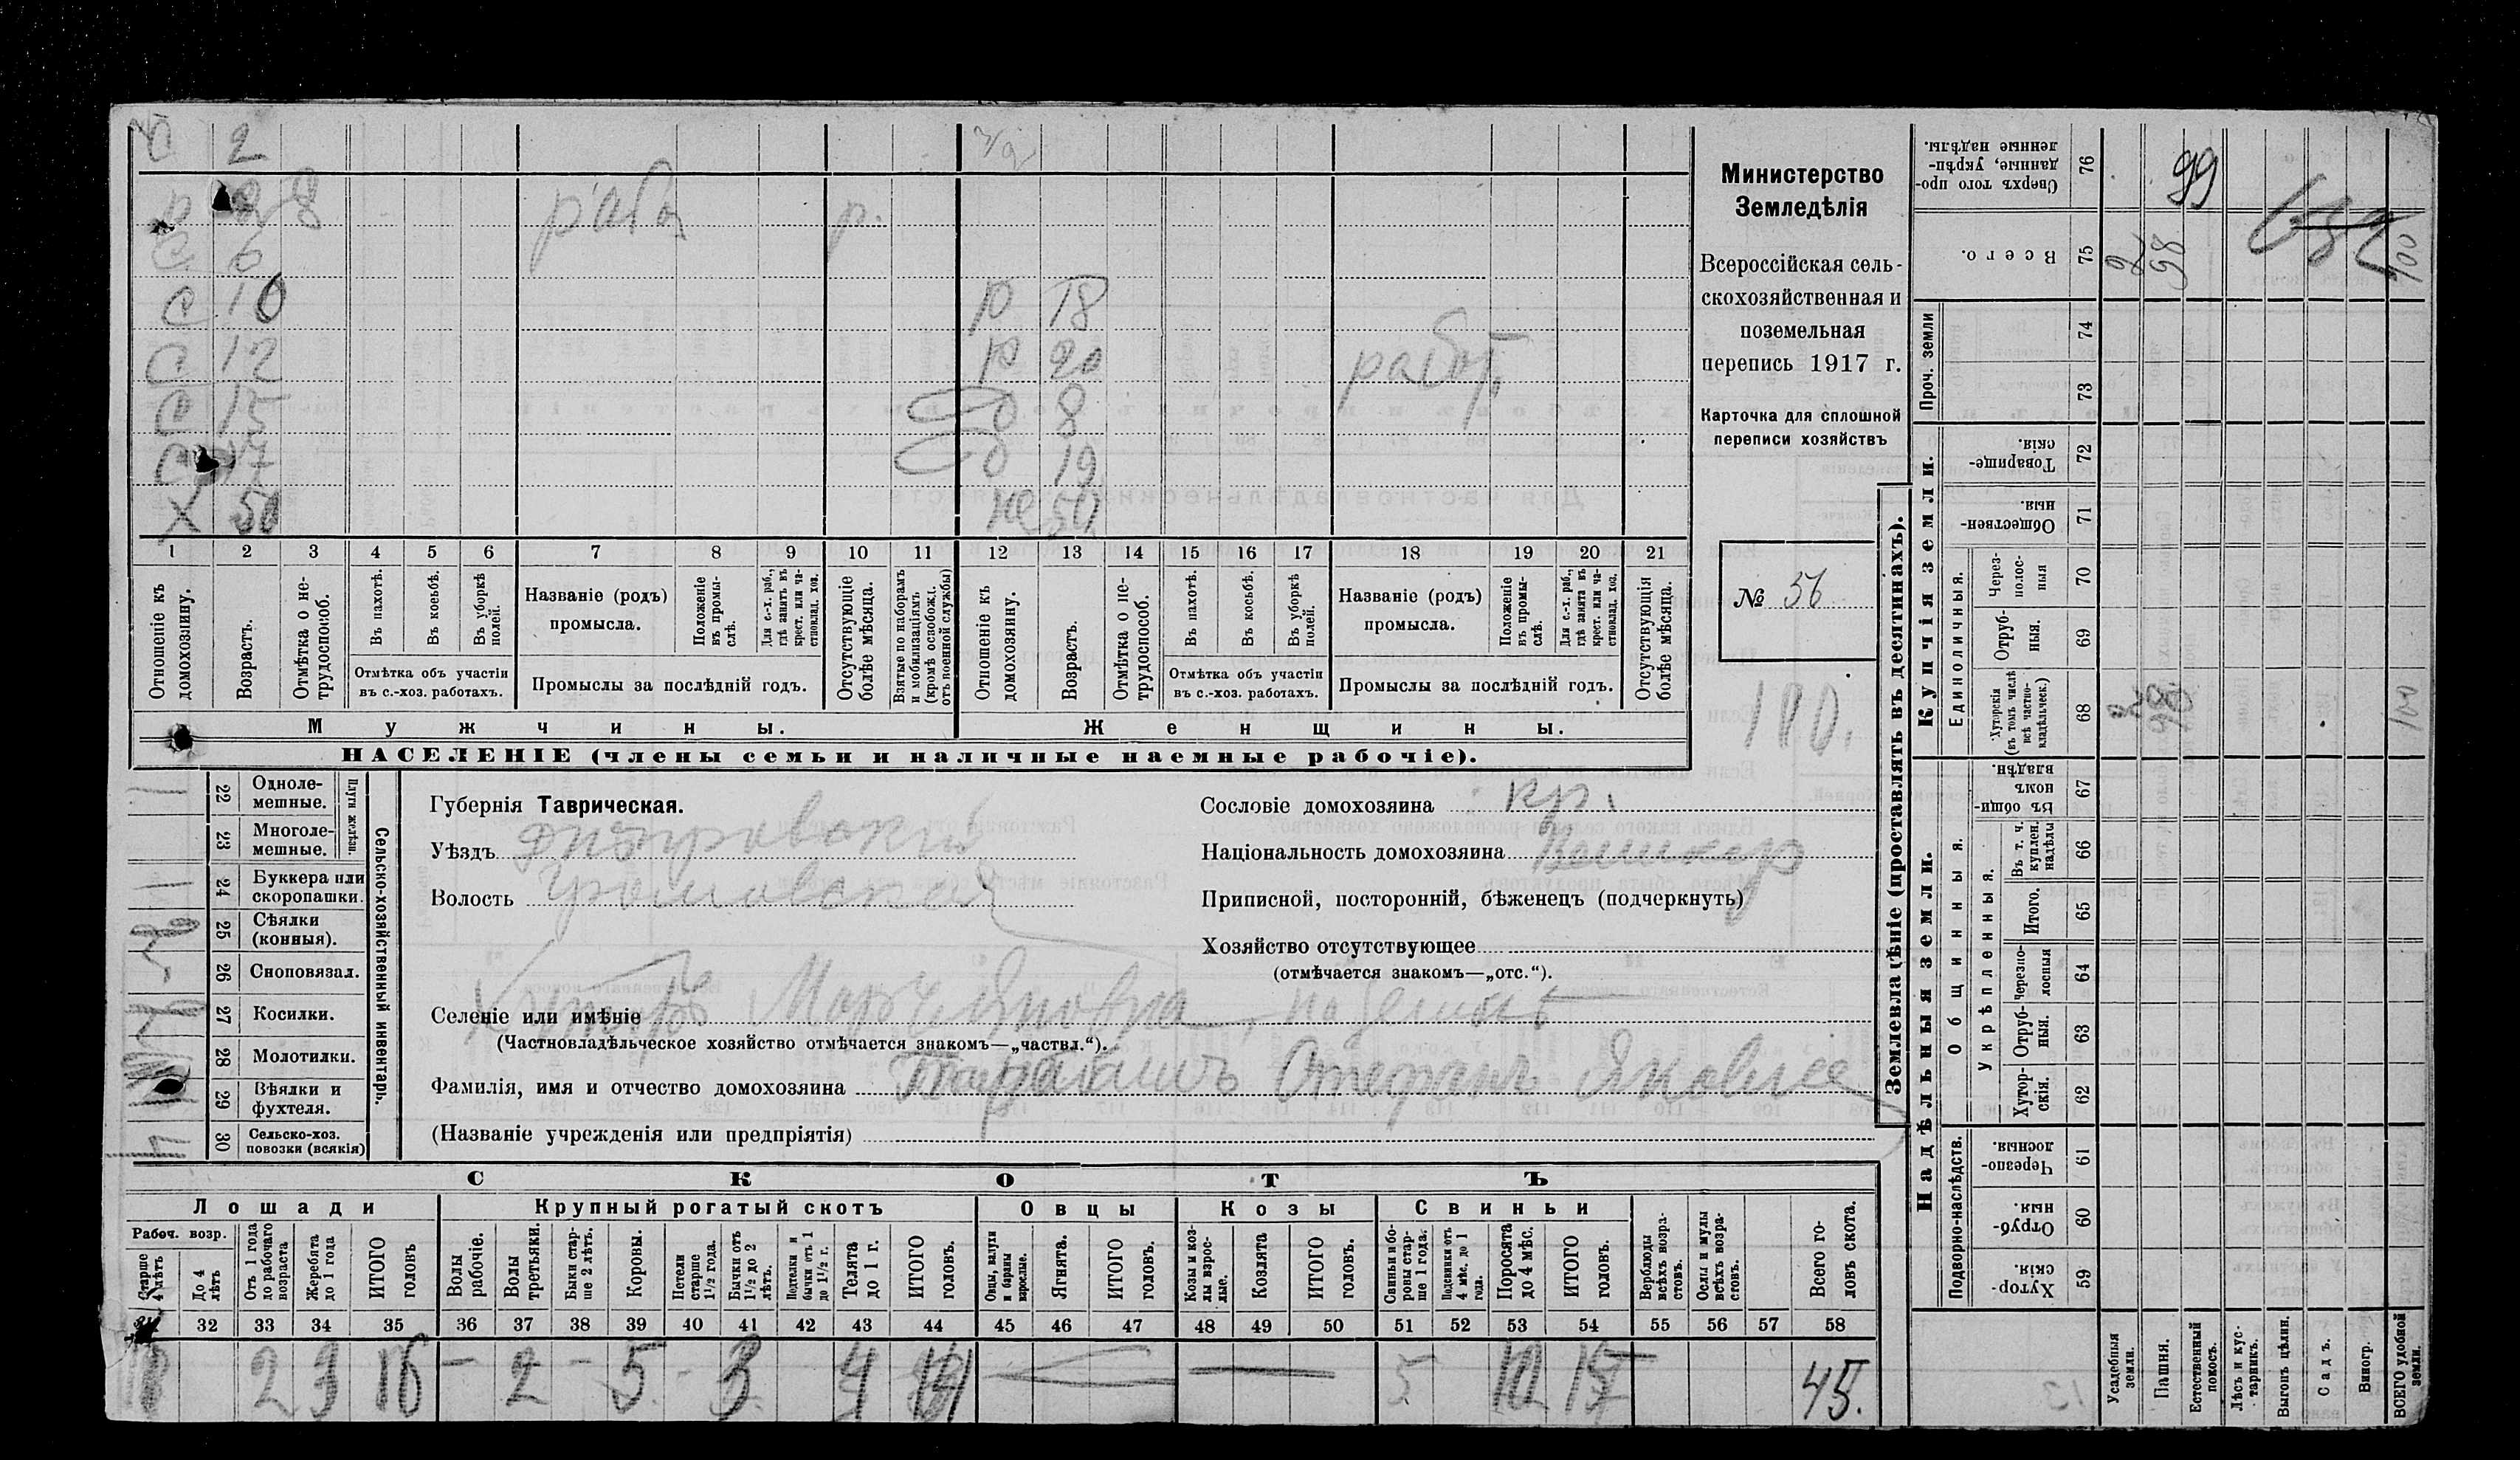 О 2
р 28 рабо р.
С 6
С 10 р 18
С 12 р 20 работ.
С 15 О 8
С 17 О 19
Х 50 же 50
1 2 3 4 5 6 7 8 9 10 11 12 13 14 15 16 17 18 19 20 21
Отношеніе къ домохозяину.
Возрастъ.
Отмѣтка о нетрудоспособ.
Въ пахотѣ.
Въ косьбѣ.
Въ уборкѣ полей.
Отмѣтка объ участіи въ с.-хоз. работахъ.
Названіе (родъ) промысла.
Положеніе въ промыслѣ.
Для с.-х. раб., гдѣ занятъ въ крест. или частновлад. хоз.
Промыслы за послѣдній годъ.
Отсутствующіе болѣе мѣсяца.
Взятые по наборамъ и мобилизаціямъ (кромѣ освобожд. отъ военной службы)
Отношеніе къ домохозяину.
Возрастъ.
Отмѣтка о нетрудоспособ.
Въ пахотѣ.
Въ косьбѣ.
Въ уборкѣ полей.
Отмѣтка объ участіи въ с.-хоз. работахъ.
Названіе (родъ) промысла.
Положеніе въ промыслѣ.
Для с.-х. раб., гдѣ занята въ крест. или частновлад. хоз.
Промыслы за послѣдній годъ.
Отсутствующія болѣе мѣсяца.
Мужчины.
Женщины.
НАСЕЛЕНІЕ (члены семьи и наличные наемные рабочіе).
Министерство
Земледѣлія
Всероссійская сель-
скохозяйственная и
поземельная
перепись 1917 г.
Карточка для сплошной
переписи хозяйствъ
№ 56
22 Одноле-
мешные.
23 Многоле-
мешные.
Плуги желѣзн.
24 Буккера или
скоропашки.
25 Сѣялки
(конныя).
26 Сноповязал.
27 Косилки.
28 Молотилки.
29 Вѣялки и
фухтеля.
30 Сельско-хоз.
повозки (всякія)
Сельско-хозяйственный инвентарь.
Губернія Таврическая.
Уѣздъ Днѣпровскій
Волость
Селеніе или имѣніе Хуторъ
(Частновладѣльческое хозяйство отмѣчается знакомъ—„частвл.“).
Фамилія, имя и отчество домохозяина Тарабашъ Стефанъ Яковлев
(Названіе учрежденія или предпріятія)
Сословіе домохозяина кр.
Національность домохозяина
Приписной, посторонній, бѣженецъ (подчеркнуть)
Хозяйство отсутствующее
(отмѣчается знакомъ—„отс.“).
СКОТЪ
Лошади
Крупный рогатый скотъ
Овцы
Козы
Свиньи
Рабоч. возр.
Старше 4 лѣтъ
До 4 лѣтъ
Отъ 1 года до рабочаго возраста
Жеребята до 1 года
ИТОГО головъ
Волы рабочіе.
Волы третьяки.
Быки старше 2 лѣтъ.
Коровы.
Нетели старше 1½ года.
Бычки отъ 1½ до 2 лѣтъ.
Подтелки и бычки отъ 1 до 1½ г.
Телята до 1 г.
ИТОГО головъ.
Овцы, валухи и бараны взрослые.
Ягнята.
ИТОГО головъ.
Козы и козлы взрослые.
Козлята
ИТОГО головъ.
Свиньи и боровы старше 1 года.
Подсвинки отъ 4 мѣс. до 1 года.
Поросята до 4 мѣс.
ИТОГО головъ.
Верблюды всѣхъ возрастовъ.
Ослы и мулы всѣхъ возрастовъ.
Всего головъ скота.
32 33 34 35 36 37 38 39 40 41 42 43 44 45 46 47 48 49 50 51 52 53 54 55 56 57 58
2 3 16 – 2 – 5 - 3 4 14 5 10 15 45.
Землевладѣніе (проставлять въ десятинахъ).
Надѣльныя земли.
Купчія земли.
Проч. земли
Подворно-наслѣдств.
Общинныя.
Укрѣпленныя.
Единоличныя.
Хуторскія 59
Отрубныя 60
Черезполосныя. 61
Хуторскія. 62
Отрубныя. 63
Черезполосныя 64
Итого. 65
Въ т. ч. куплен. надѣлы 66
Въ общинномъ владѣн. 67
Хуторскія (въ томъ числѣ всѣ частновладѣльческ.) 68
Отрубныя. 69
Черезполосныя 70
Общественныя 71
Товарищескія. 72
73
74
Всего. 75
Сверхъ того проданные, укрѣпленные надѣлы. 76
Усадебныя земли.
Пашня.
Естественный покосъ.
Лѣсъ и кустарникъ.
Выгонъ цѣлин.
Садъ.
Виногр.
ВСЕГО удобной земли.
2 98 100
2 98 100
99